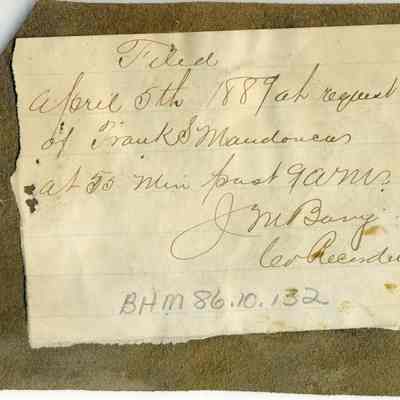 Filed
April 5th 1889 at request
of Frank S Mandoncas
at 55 min past 9 a.m.
J M Bary
Co Recorder
BHM 86.10.132